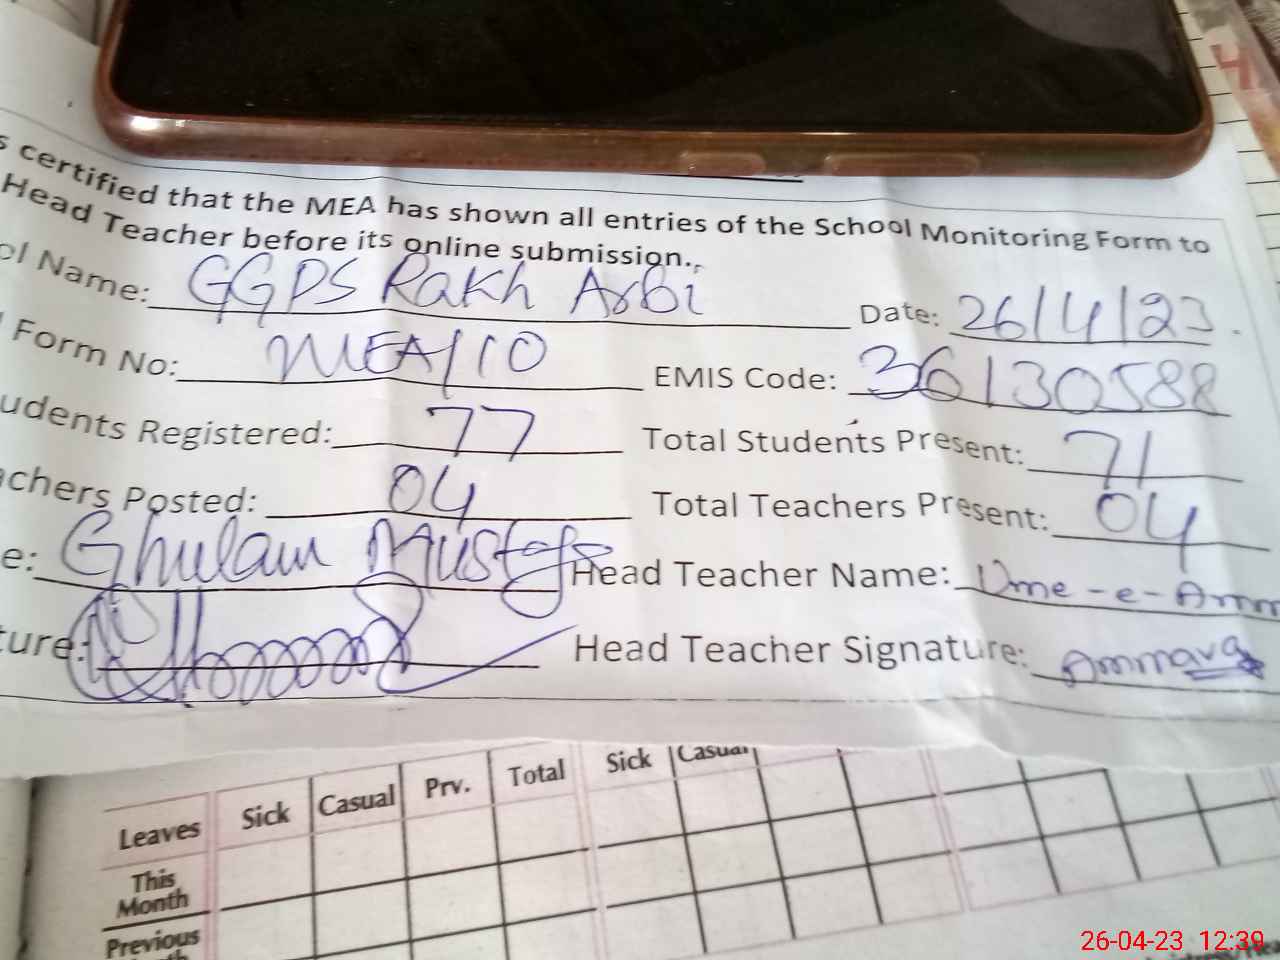 s certified that the MEA has shown all entries of the School Monitoring Form to
Head Teacher before its online submission.
ol Name: GGPS Rakh Arbi Date: 26/4/23
Form No: MEA/10 EMIS Code: 36130588
udents Registered: 77 Total Students Present: 71
achers Posted: 04 Total Teachers Present: 04
e: Ghulam Mustafa Head Teacher Name: Ume-e-Amm
ture: Head Teacher Signature: Ammara
Leaves Sick Casual Prv. Total Sick Casual
This Month
Previous
26-04-23 12:39